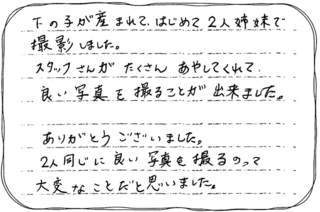 下の子が産まれて、はじめて2人姉妹で
撮影しました。
スタッフさんが たくさん あやしてくれて、
良い写真を撮ることが出来ました。
ありがとうございました。
2人同じに良い写真を撮るのって
大変なことだと思いました。